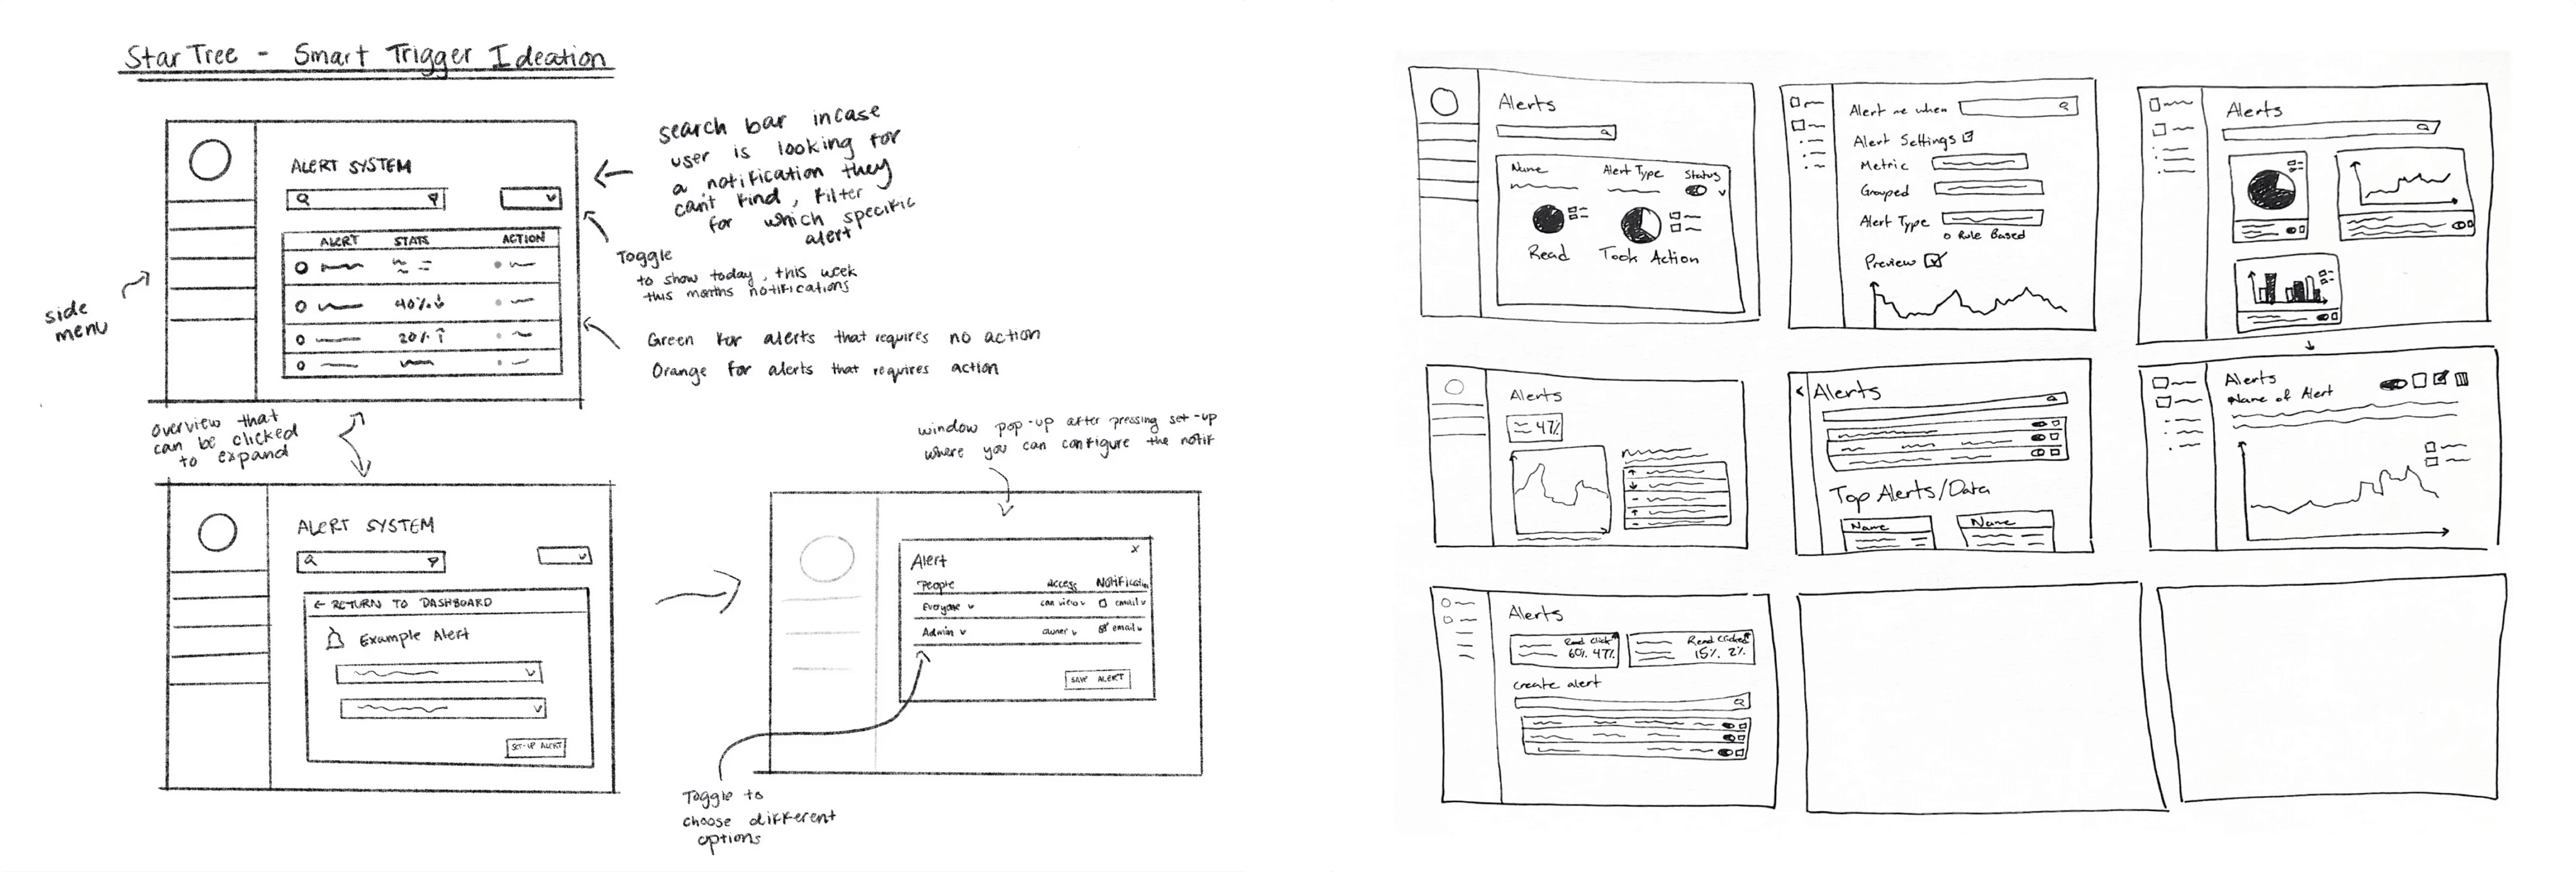 StarTree - Smart Trigger Ideation
ALERT SYSTEM
ALERT STATS ACTION
40%↓
20%↑
search bar incase
user is looking for
a notification they
cant find, filter
for which specific
alert
Toggle
to show today, this week
this months notifications
side
menu
Green for alerts that requires no action
Orange for alerts that requires action
overview that
can be clicked
to expand
window pop-up after pressing set-up
where you can configure the notif
ALERT SYSTEM
← RETURN TO DASHBOARD
Example Alert
SET-UP ALERT
Alert x
People Access Notification
Everyone can view email
Admin owner email
SAVE ALERT
Toggle to
choose different
options
Alerts
Name Alert Type Status
Read Took Action
Alert me when
Alert Settings
Metric
Grouped
Alert Type
Rule Based
Preview
Alerts
Alerts
47%
< Alerts
Top Alerts/Data
Name Name
Alerts
Name of Alert
Alerts
Read Click
60% 47%
Read Clicked
15% 2%
create alert